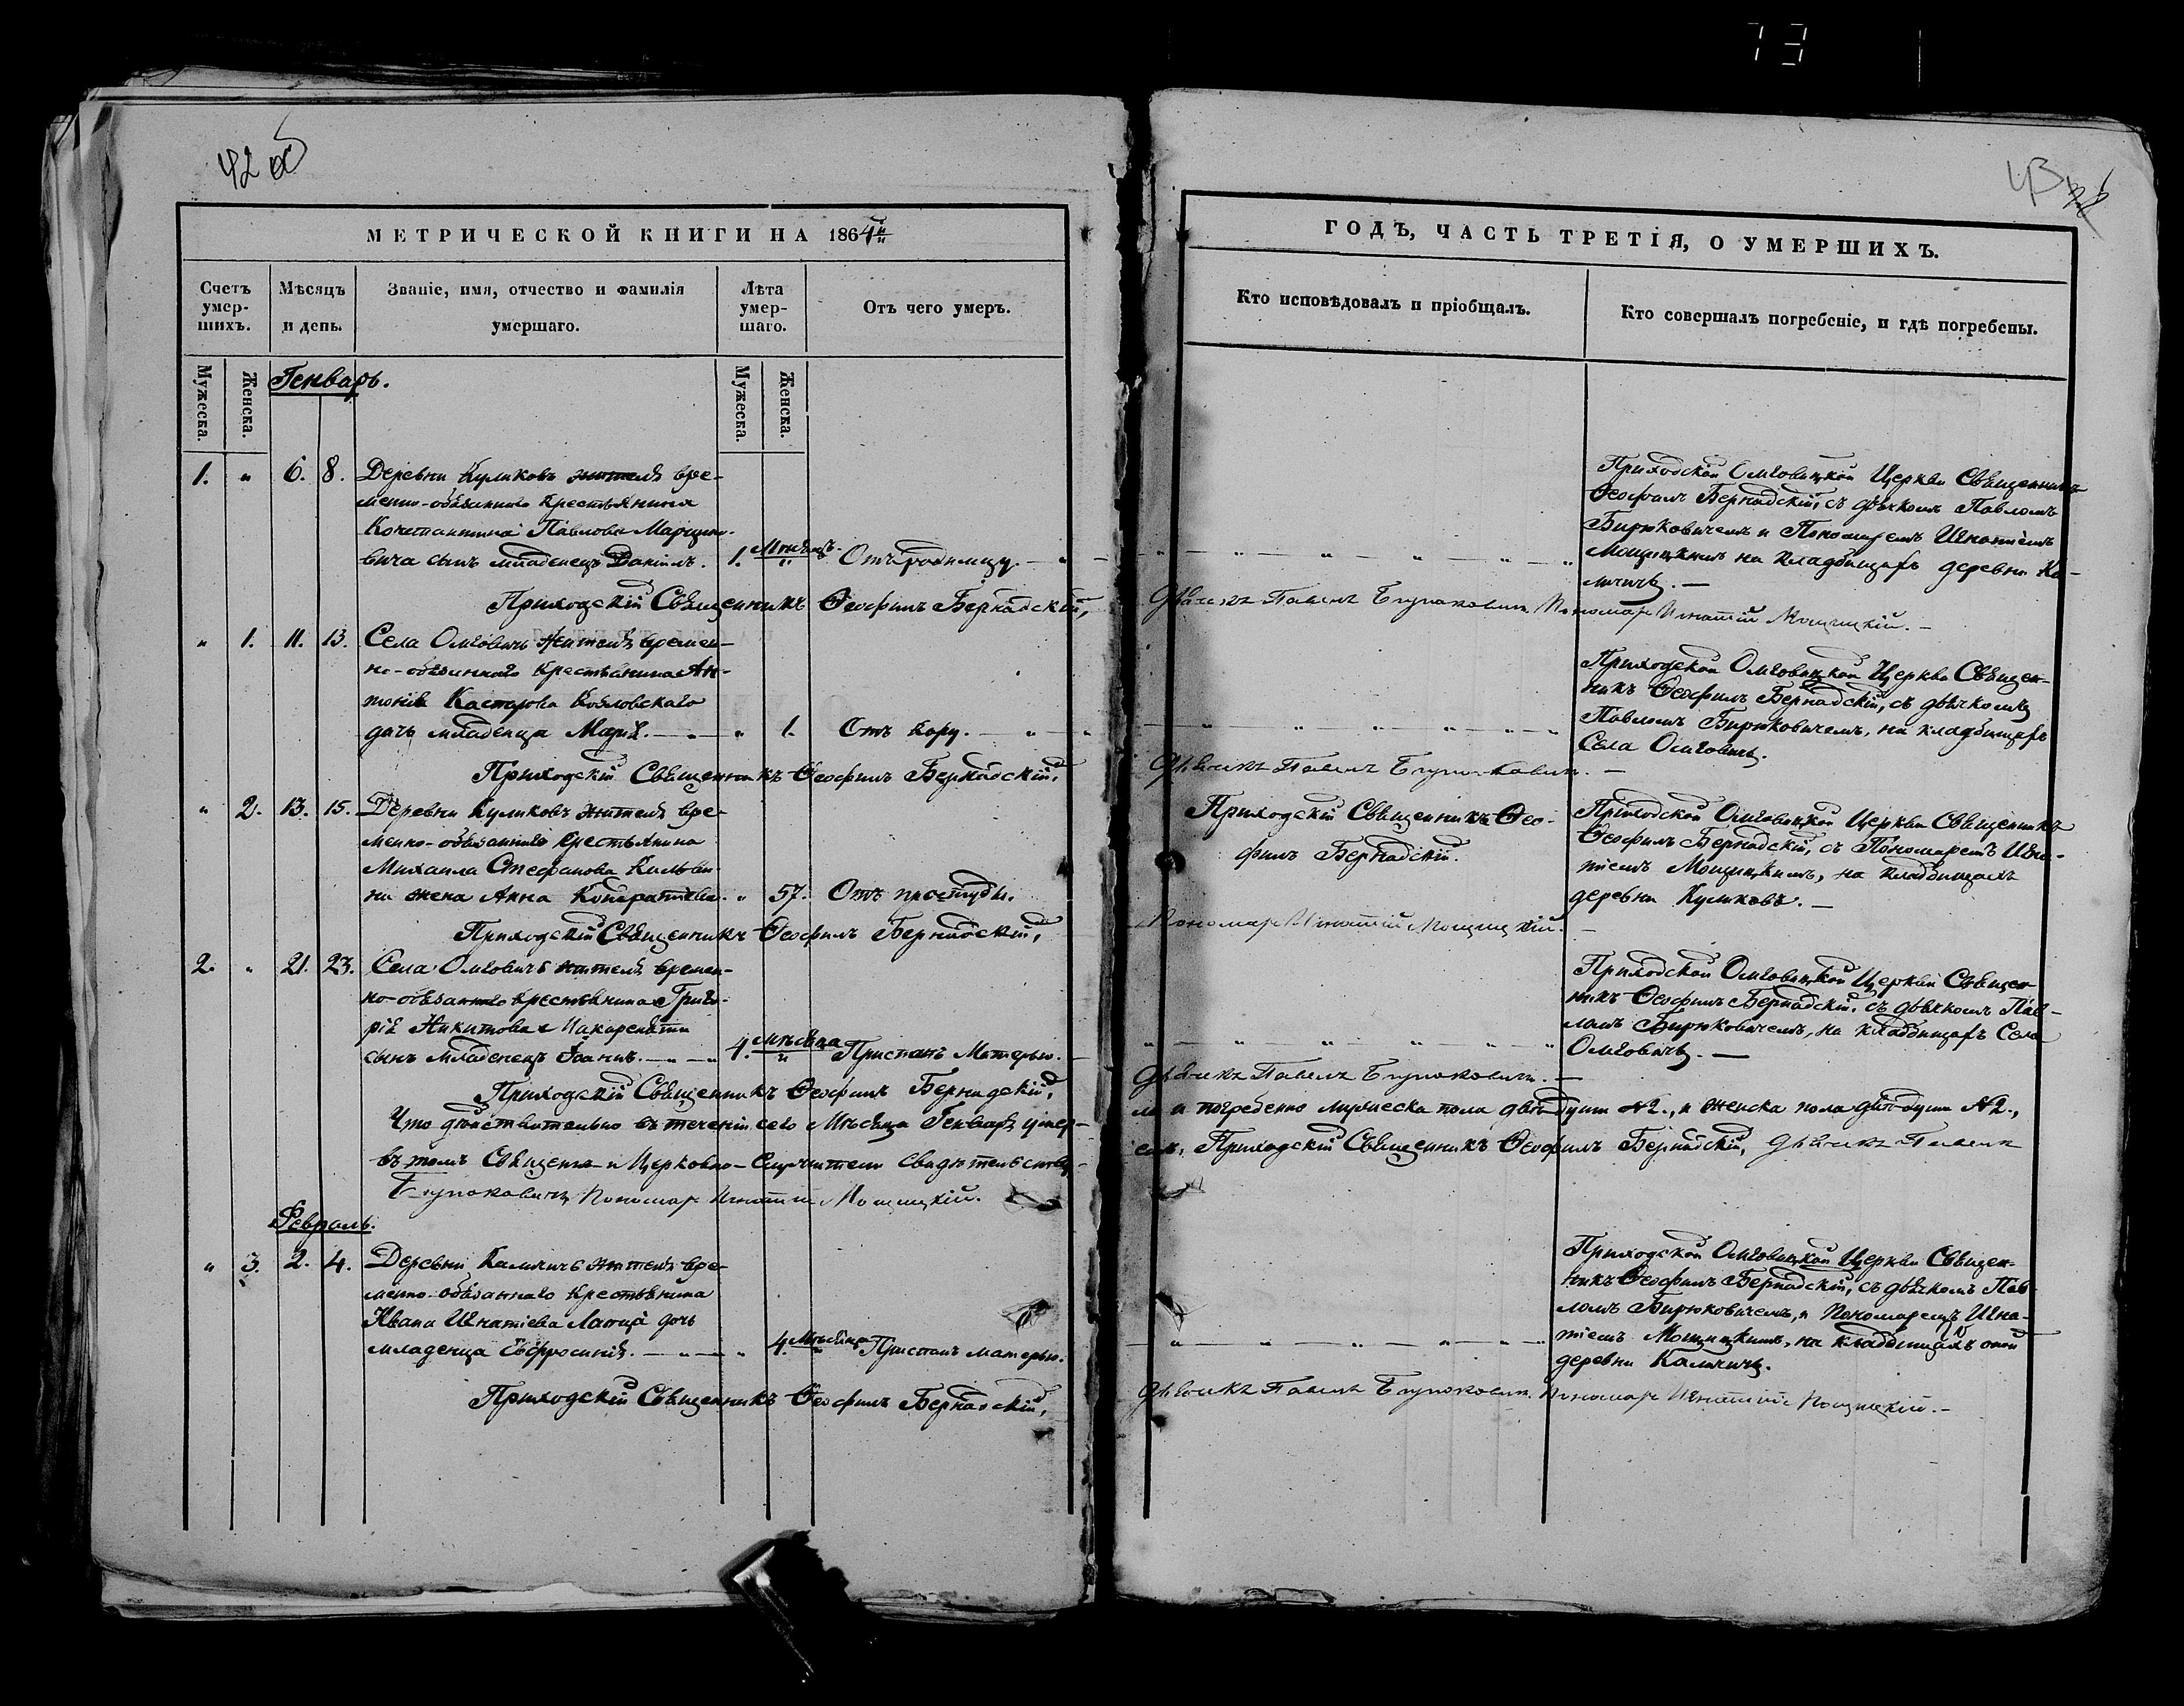 73
42 об
43
МЕТРИЧЕСКОЙ КНИГИ НА 1864й
ГОДЪ, ЧАСТЬ ТРЕТІЯ, О УМЕРШИХЪ.
Счетъ умер-шихъ.
Мѣсяцъ и день.
Званіе, имя, отчество и фамилія умершаго.
Лѣта умер-шаго.
Отъ чего умеръ.
Кто исповѣдовалъ и пріобщалъ.
Кто совершалъ погребеніе, и гдѣ погребены.
Мужеска.
Женска.
Мужеска.
Женска.
Генварь.
1. " 6. 8. Деревни Куликовъ жителя вре-
менно-обязаннаго крестьянина
Константина Павлова
вича сынъ младенецъ Даніилъ. 1. Мѣсяцъ. Отъ родимцу.
Приходской Омговицкой Церкви Священникъ
Ѳеофилъ Бернадскій, съ дьячкомъ Павломъ
Бирюковичемъ и Пономаремъ Игнатіемъ
Мощицкимъ на кладбищахъ деревни Ка-
личичъ.
Приходскій Священникъ Ѳеофилъ Бернадскій,
Дьячекъ Павелъ Бирюковичъ Пономарь Игнатій Мощицкій.
" 1. 11. 13. Села Омговичъ жителя времен-
но-обязаннаго крестьянина Ан-
тонія Касперова Козловскаго
дочь младенца Марія. " 1. Отъ кору.
Приходской Омговицкой Церкви Священ-
никъ Ѳеофилъ Бернадскій, съ дьячкомъ
Павломъ Бирюковичемъ, на кладбищахъ
Села Омговичъ.
Приходскій Священникъ Ѳеофилъ Бернадскій,
Дьячекъ Павелъ Бирюковичъ.
" 2. 13. 15. Деревни Куликовъ жителя вре-
менно-обязаннаго крестьянина
Михаила Стефанова
ни жена Анна Кондратіева. " 57. Отъ простуды.
Приходскій Священникъ Ѳео-
филъ Бернадскій.
Приходской Омговицкой Церкви Священникъ
Ѳеофилъ Бернадскій, съ Пономаремъ Игна-
тіемъ Мощицкимъ, на кладбищахъ
деревни Куликовъ.
Приходскій Священникъ Ѳеофилъ Бернадскій,
Пономарь Игнатій Мощицкій.
2. " 21. 23. Села Омговичъ жителя времен-
но-обязаннаго крестьянина Григо-
рія Никитова
сынъ младенецъ Іоаннъ. 4. Мѣсяца Приспанъ Матерью.
Приходской Омговицкой Церкви Священ-
никъ Ѳеофилъ Бернадскій, съ дьячкомъ Пав-
ломъ Бирюковичемъ, на кладбищахъ Села
Омговичъ.
Приходскій Священникъ Ѳеофилъ Бернадскій,
Дьячекъ Павелъ Бирюковичъ.
Что дѣйствительно въ теченіи сего Мѣсяца Генваря умер-
ло и погребено мужеска пола двѣ души №2., и женска пола двѣ души №2.,
въ томъ Священно и Церковно-Служители свидѣтельству-
емъ, Приходскій Священникъ Ѳеофилъ Бернадскій, Дьячекъ Павелъ
Бирюковичъ Пономарь Игнатій Мощицкій.
Февраль.
" 3. 2. 4. Деревни Каличичъ жителя вре-
менно-обязаннаго крестьянина
Ивана Игнатіева дочь
младенца Евфросинія. " 4. Мѣсяца Приспанъ матерью.
Приходской Омговицкой Церкви Священ-
никъ Ѳеофилъ Бернадскій, съ дьячкомъ Пав-
ломъ Бирюковичемъ, и Пономаремъ Игна-
тіемъ Мощицкимъ, на кладбищахъ оной
деревни Каличичъ.
Приходскій Священникъ Ѳеофилъ Бернадскій,
Дьячекъ Павелъ Бирюковичъ. Пономарь Игнатій Мощицкій.